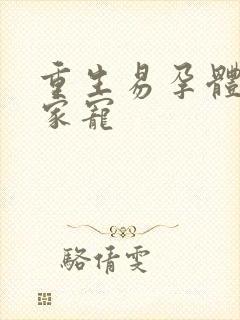 重生易孕體
家寵
駱情雯